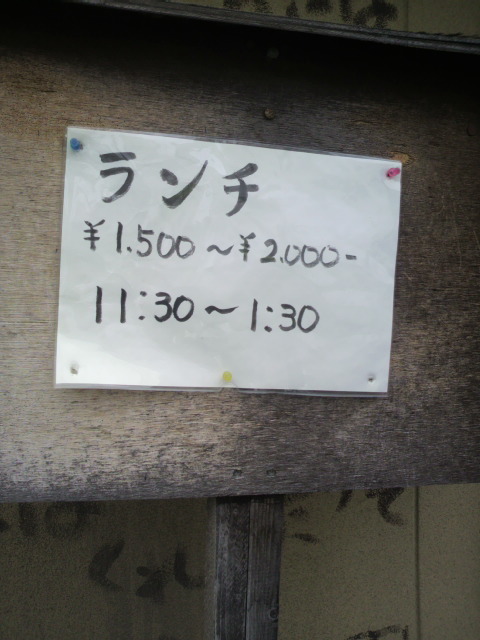 ランチ
¥1.500～¥2.000-
11:30～1:30